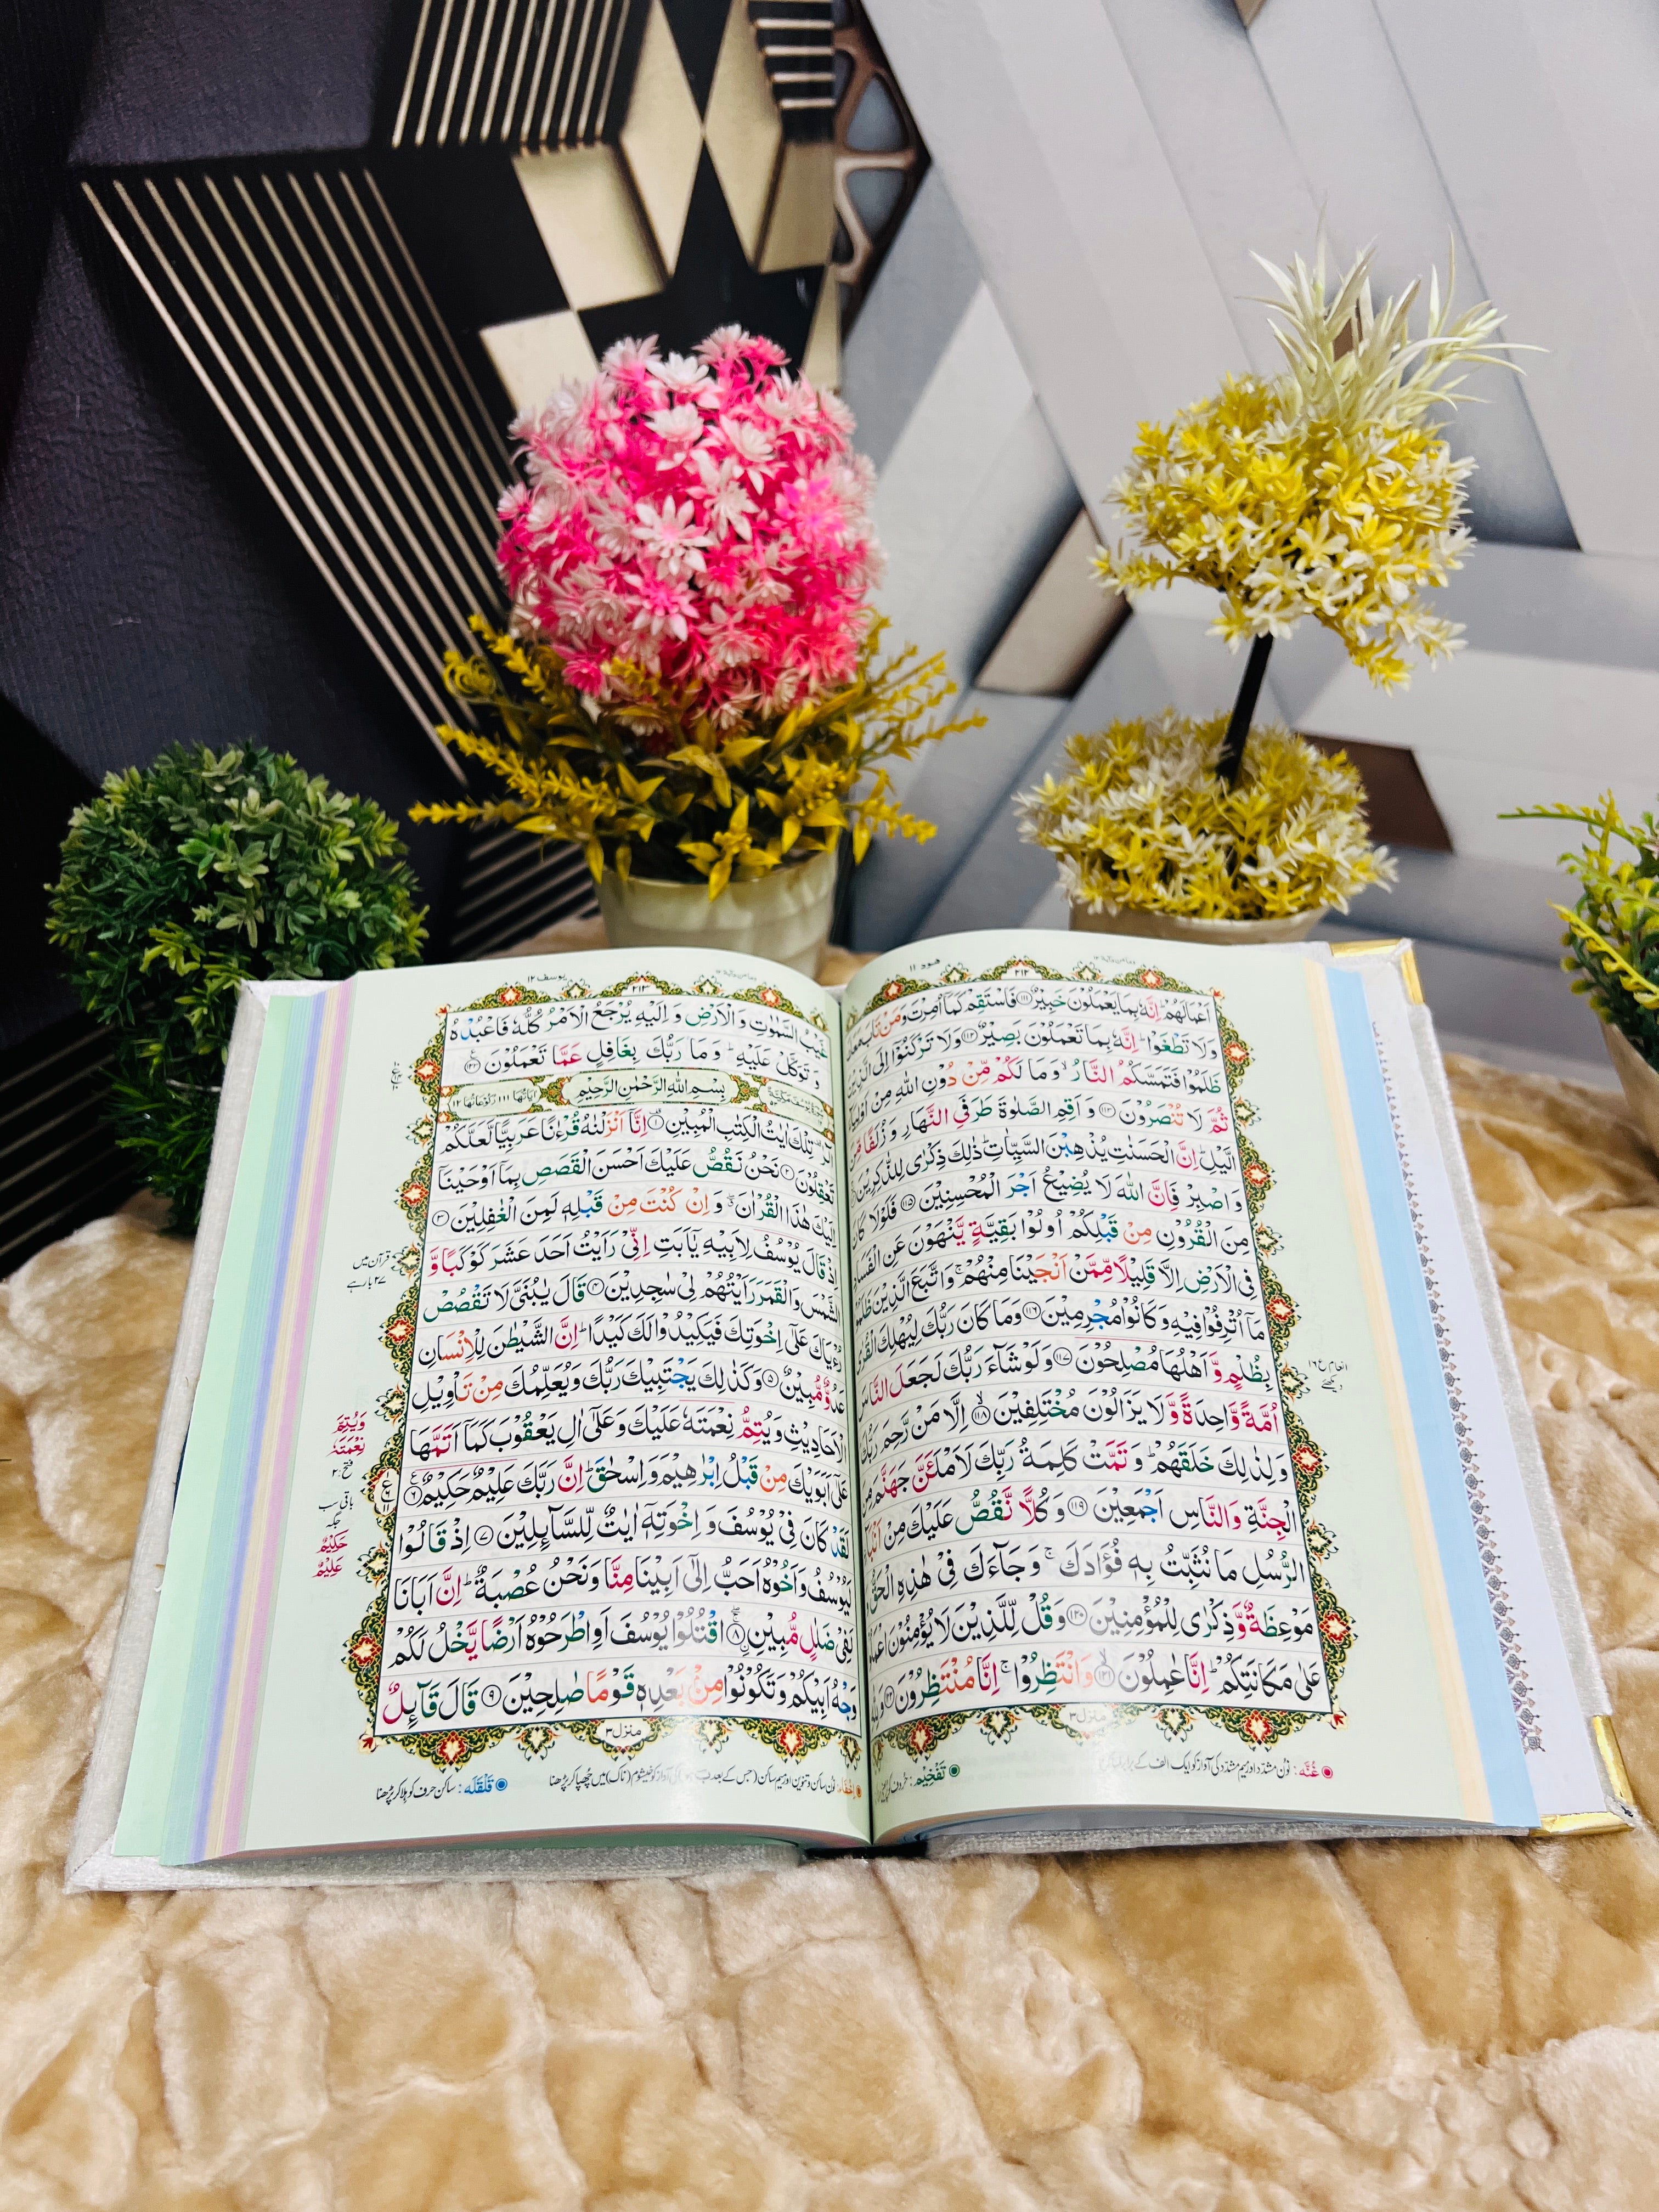 هود ۱۱
۲۱۲
اَعْمَالَهُمْ ؕ اِنَّهٗ بِمَا يَعْمَلُوْنَ خَبِيْرٌ ﴿۱۱۱﴾ فَاسْتَقِمْ كَمَاۤ اُمِرْتَ وَ مَنْ تَابَ مَعَكَ
وَ لَا تَطْغَوْا ؕ اِنَّهٗ بِمَا تَعْمَلُوْنَ بَصِيْرٌ ﴿۱۱۲﴾ وَ لَا تَرْكَنُوْۤا اِلَى الَّذِيْنَ
ظَلَمُوْا فَتَمَسَّكُمُ النَّارُ ۙ وَ مَا لَكُمْ مِّنْ دُوْنِ اللّٰهِ مِنْ اَوْلِيَآءَ
ثُمَّ لَا تُنْصَرُوْنَ ﴿۱۱۳﴾ وَ اَقِمِ الصَّلٰوةَ طَرَفَيِ النَّهَارِ وَ زُلَفًا مِّنَ
الَّيْلِ ؕ اِنَّ الْحَسَنٰتِ يُذْهِبْنَ السَّيِّاٰتِ ؕ ذٰلِكَ ذِكْرٰى لِلذّٰكِرِيْنَ
وَ اصْبِرْ فَاِنَّ اللّٰهَ لَا يُضِيْعُ اَجْرَ الْمُحْسِنِيْنَ ﴿۱۱۵﴾ فَلَوْ لَا كَانَ
مِنَ الْقُرُوْنِ مِنْ قَبْلِكُمْ اُولُوْا بَقِيَّةٍ يَّنْهَوْنَ عَنِ الْفَسَادِ
فِي الْاَرْضِ اِلَّا قَلِيْلًا مِّمَّنْ اَنْجَيْنَا مِنْهُمْ ۚ وَ اتَّبَعَ الَّذِيْنَ ظَلَمُوْا
مَاۤ اُتْرِفُوْا فِيْهِ وَ كَانُوْا مُجْرِمِيْنَ ﴿۱۱۶﴾ وَ مَا كَانَ رَبُّكَ لِيُهْلِكَ الْقُرٰى
بِظُلْمٍ وَّ اَهْلُهَا مُصْلِحُوْنَ ﴿۱۱۷﴾ وَ لَوْ شَآءَ رَبُّكَ لَجَعَلَ النَّاسَ
اُمَّةً وَّاحِدَةً وَّ لَا يَزَالُوْنَ مُخْتَلِفِيْنَ ﴿۱۱۸﴾ۙ اِلَّا مَنْ رَّحِمَ رَبُّكَ
وَ لِذٰلِكَ خَلَقَهُمْ ؕ وَ تَمَّتْ كَلِمَةُ رَبِّكَ لَاَمْلَئَنَّ جَهَنَّمَ مِنَ
الْجِنَّةِ وَ النَّاسِ اَجْمَعِيْنَ ﴿۱۱۹﴾ وَ كُلًّا نَّقُصُّ عَلَيْكَ مِنْ اَنْۢبَآءِ
الرُّسُلِ مَا نُثَبِّتُ بِهٖ فُؤَادَكَ ۚ وَ جَآءَكَ فِيْ هٰذِهِ الْحَقُّ
مَوْعِظَةٌ وَّ ذِكْرٰى لِلْمُؤْمِنِيْنَ ﴿۱۲۰﴾ وَ قُلْ لِّلَّذِيْنَ لَا يُؤْمِنُوْنَ اعْمَلُوْا
عَلٰى مَكَانَتِكُمْ ؕ اِنَّا عٰمِلُوْنَ ﴿۱۲۱﴾ۙ وَ انْتَظِرُوْا ۚ اِنَّا مُنْتَظِرُوْنَ ﴿۱۲۲﴾ وَ لِلّٰهِ
منزل ۳
غُنَّه : نون مشدد اور میم مشدد کی آواز کو ایک الف کے برابر لمبا کرنا
تَفْخِيْم : حروف کو
يوسف ۱۲
۲۱۳
غَيْبُ السَّمٰوٰتِ وَ الْاَرْضِ وَ اِلَيْهِ يُرْجَعُ الْاَمْرُ كُلُّهٗ فَاعْبُدْهُ
وَ تَوَكَّلْ عَلَيْهِ ؕ وَ مَا رَبُّكَ بِغَافِلٍ عَمَّا تَعْمَلُوْنَ ﴿۱۲۳﴾
بِسْمِ اللّٰهِ الرَّحْمٰنِ الرَّحِيْمِ
اٰيَاتُهَا ۱۱۱ رُكُوْعَاتُهَا ۱۲
الٓرٰ ۟ تِلْكَ اٰيٰتُ الْكِتٰبِ الْمُبِيْنِ ﴿۱﴾ اِنَّاۤ اَنْزَلْنٰهُ قُرْءٰنًا عَرَبِيًّا لَّعَلَّكُمْ
تَعْقِلُوْنَ ﴿۲﴾ نَحْنُ نَقُصُّ عَلَيْكَ اَحْسَنَ الْقَصَصِ بِمَاۤ اَوْحَيْنَاۤ
اِلَيْكَ هٰذَا الْقُرْاٰنَ ۖ وَ اِنْ كُنْتَ مِنْ قَبْلِهٖ لَمِنَ الْغٰفِلِيْنَ ﴿۳﴾
اِذْ قَالَ يُوْسُفُ لِاَبِيْهِ يٰۤاَبَتِ اِنِّيْ رَاَيْتُ اَحَدَ عَشَرَ كَوْكَبًا وَّ
الشَّمْسَ وَ الْقَمَرَ رَاَيْتُهُمْ لِيْ سٰجِدِيْنَ ﴿۴﴾ قَالَ يٰبُنَيَّ لَا تَقْصُصْ
رُءْيَاكَ عَلٰۤى اِخْوَتِكَ فَيَكِيْدُوْا لَكَ كَيْدًا ؕ اِنَّ الشَّيْطٰنَ لِلْاِنْسَانِ
عَدُوٌّ مُّبِيْنٌ ﴿۵﴾ وَ كَذٰلِكَ يَجْتَبِيْكَ رَبُّكَ وَ يُعَلِّمُكَ مِنْ تَاْوِيْلِ
الْاَحَادِيْثِ وَ يُتِمُّ نِعْمَتَهٗ عَلَيْكَ وَ عَلٰۤى اٰلِ يَعْقُوْبَ كَمَاۤ اَتَمَّهَا
عَلٰۤى اَبَوَيْكَ مِنْ قَبْلُ اِبْرٰهِيْمَ وَ اِسْحٰقَ ؕ اِنَّ رَبَّكَ عَلِيْمٌ حَكِيْمٌ ﴿۶﴾
لَقَدْ كَانَ فِيْ يُوْسُفَ وَ اِخْوَتِهٖۤ اٰيٰتٌ لِّلسَّآئِلِيْنَ ﴿۷﴾ اِذْ قَالُوْا
لَيُوْسُفُ وَ اَخُوْهُ اَحَبُّ اِلٰۤى اَبِيْنَا مِنَّا وَ نَحْنُ عُصْبَةٌ ؕ اِنَّ اَبَانَا
لَفِيْ ضَلٰلٍ مُّبِيْنِ ﴿۸﴾ اقْتُلُوْا يُوْسُفَ اَوِ اطْرَحُوْهُ اَرْضًا يَّخْلُ لَكُمْ
وَجْهُ اَبِيْكُمْ وَ تَكُوْنُوْا مِنْۢ بَعْدِهٖ قَوْمًا صٰلِحِيْنَ ﴿۹﴾ قَالَ قَآئِلٌ
منزل ۳
قَلْقَلَه : ساکن حرف کو ہلا کر پڑھنا
وَيُتِمَّ
نِعْمَتَهٗ
فتح ۲
باقی سب
جگہ
حَكِيْمٌ
عَلِيْمٌ